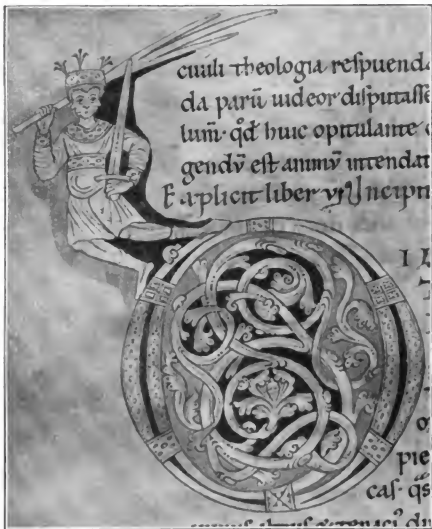 ciuili theologia respuend
da parū uideor disputasse
lum· qd̄ huic opitulante
gendū est animū intendat
Explicit liber vi Incipit
I
o
pie
cas· q̄s